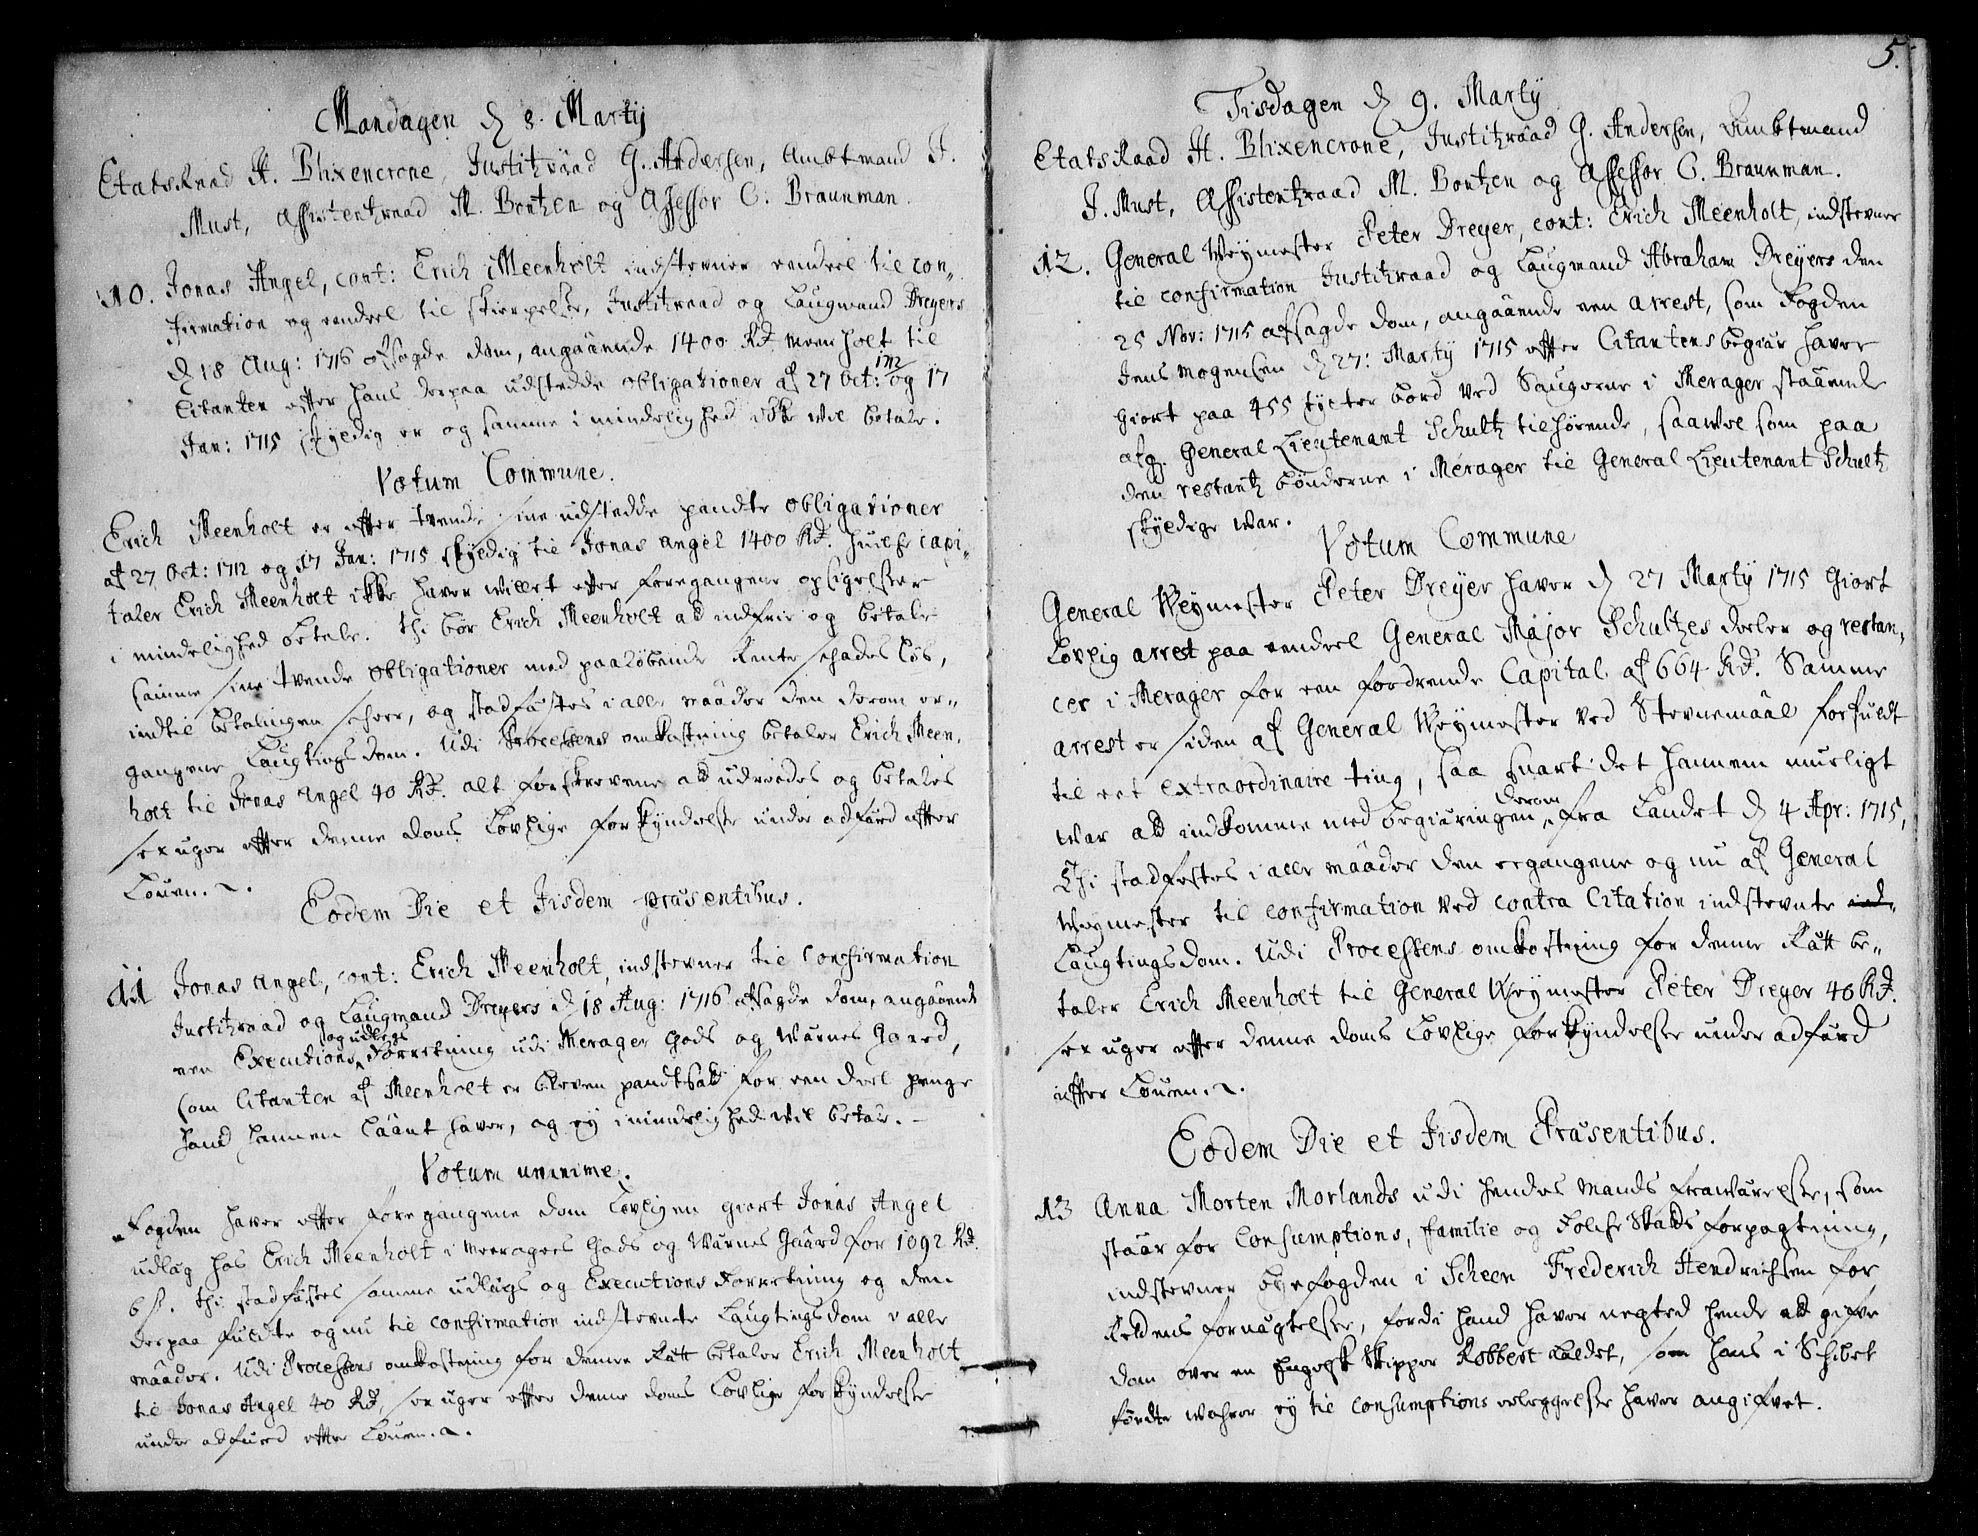 Mandagen d 8. Martij
Etats Raad H. Blixencrone, Justitzraad G. Andersen, Ambtmand J.
Must, Assistentzraad M. Bentzen og Assessor C. Braunman.
10. Jonas Angel, cont: Erich Meenholt indstevner eendeel til con-
firmation og eendeel til skierpelse, Justitzraad og Laugmand Dreyers
d 18 Aug: 1716 afsagde dom, angaaende 1400 Rd. Meenholt til
Citanten efter hans derpaa udstedde obligationer af 27 Oct: 1712 og 17
Jan: 1715 skyldig er og samme i mindelighed ikke wil betale.
Votum Commune.
Erich Meenholt er efter tvende sine udstedde pandte obligationer
af 27 Oct: 1712 og 17 Jan: 1715 skyldig til Jonas Angel 1400 Rd. huilke capi-
taler Erich Meenholt ikke haver willet efter foregangene opsigelser
i mindelighed betale. thi bør Erich Meenholt at indfrie og betale
samme sine tvende obligationer med paaløbende Rente schadesløs,
indtil betalingen scheer, og stadfæstes i alle maader den derom er-
gangene Laugtings dom. Udi Processens omkostning betaler Erich Meen-
holt til Jonas Angel 40 Rd. alt forskrevene at udreedes og betales
sex uger efter denne doms Lovlige forkyndelse under adfærd efter
Louen.
Eodem Die et Iisdem præsentibus.
11 Jonas Angel, cont: Erich Meenholt, indstevner til confirmation
Justitzraad og Laugmand Dreyers d 18 Aug: 1716 afsagde dom, angaaende
een Executions og udlegs Forretning udi Merager Gods og Warnes Gaard,
som Citanten af Meenholt er bleven pandtsatt for een deel penge
hand hannem laant haver, og ey i mindelighed wil betale. —
Votum unanime.
Fogden haver efter foregangene dom Lovligen giort Jonas Angel
udlæg hos Erich Meenholt i Meeragers Gods og Warnes Gaard for 1092 Rd.
6 s. thi stadfæstes samme udlægs og Executions Forretning og den
derpaa fuldte og nu til confirmation indstevnte Laugtings dom i alle
maader. Udi Processens omkostning for denne Rætt betaler Erich Meenholt
til Jonas Angel 40 Rd, sex uger efter denne doms Lovlige forkyndelse
under adfærd efter Louen.
5.
Tisdagen d 9. Martij
Etats Raad H. Blixencrone, Justitzraad G. Andersen, Ambtmand
J. Must, Assistentzraad M. Bentzen og Assessor C. Braunman.
12. General Veymester Peter Dreyer, cont: Erich Meenholt, indstevner
til confirmation Justitzraad og Laugmand Abraham Dreyers den
25 Nov: 1715 afsagde dom, angaaende een arrest, som Fogden
Jens Mogensen d 27: Martij 1715 efter Citantens begiær haver
giort paa 455 tylter bord ved Saugerne i Merager staaende
afg. General Lieutenant Schultz tilhørende, saawel som paa
den restantz bønderne i Merager til General Lieutenant Schultz
skyldige war.
Votum Commune
General Weymester Peter Dreyer haver d 27 Martij 1715 giort
Lovlig arrest paa eendeel General Major Schultzes deeler og restan-
cer i Merager for een fordrende Capital af 664 Rd. Samme
arrest er siden af General Weymester ved Stevnemaal forfuldt
til eet extraordinaire ting, saa snart det hannem mueligt
war at indkomme med begiæringen derom fra Landet d 4 Apr: 1715,
Thi stadfæstes i alle maader den ergangene og nu af General
Weymester til confirmation ved contra Citation indstevnte ind-
Laugtings dom. Udi Processens omkostning for denne Rætt be-
taler Erich Meenholt til General Weymester Peter Dreyer 40 Rd.
sex uger efter denne doms Lovlige forkyndelse under adfærd
efter Louen.
Eodem Die et Iisdem Præsentibus.
13 Anna Morten Morlands udi hendes Mands fraværelse, som
staar for Consumptions, familie og Folke Skatts forpagtning,
indstevner byefogden i Scheen Frederich Hendrichsen for
Rettens fornægtelse, fordi hand haver negted hende at gifve
dom over en Engelsk Skipper Robbert kaldet, som hans i Schibet
førdte wahrer ey til Consumptions erleggelse haver angifvet.